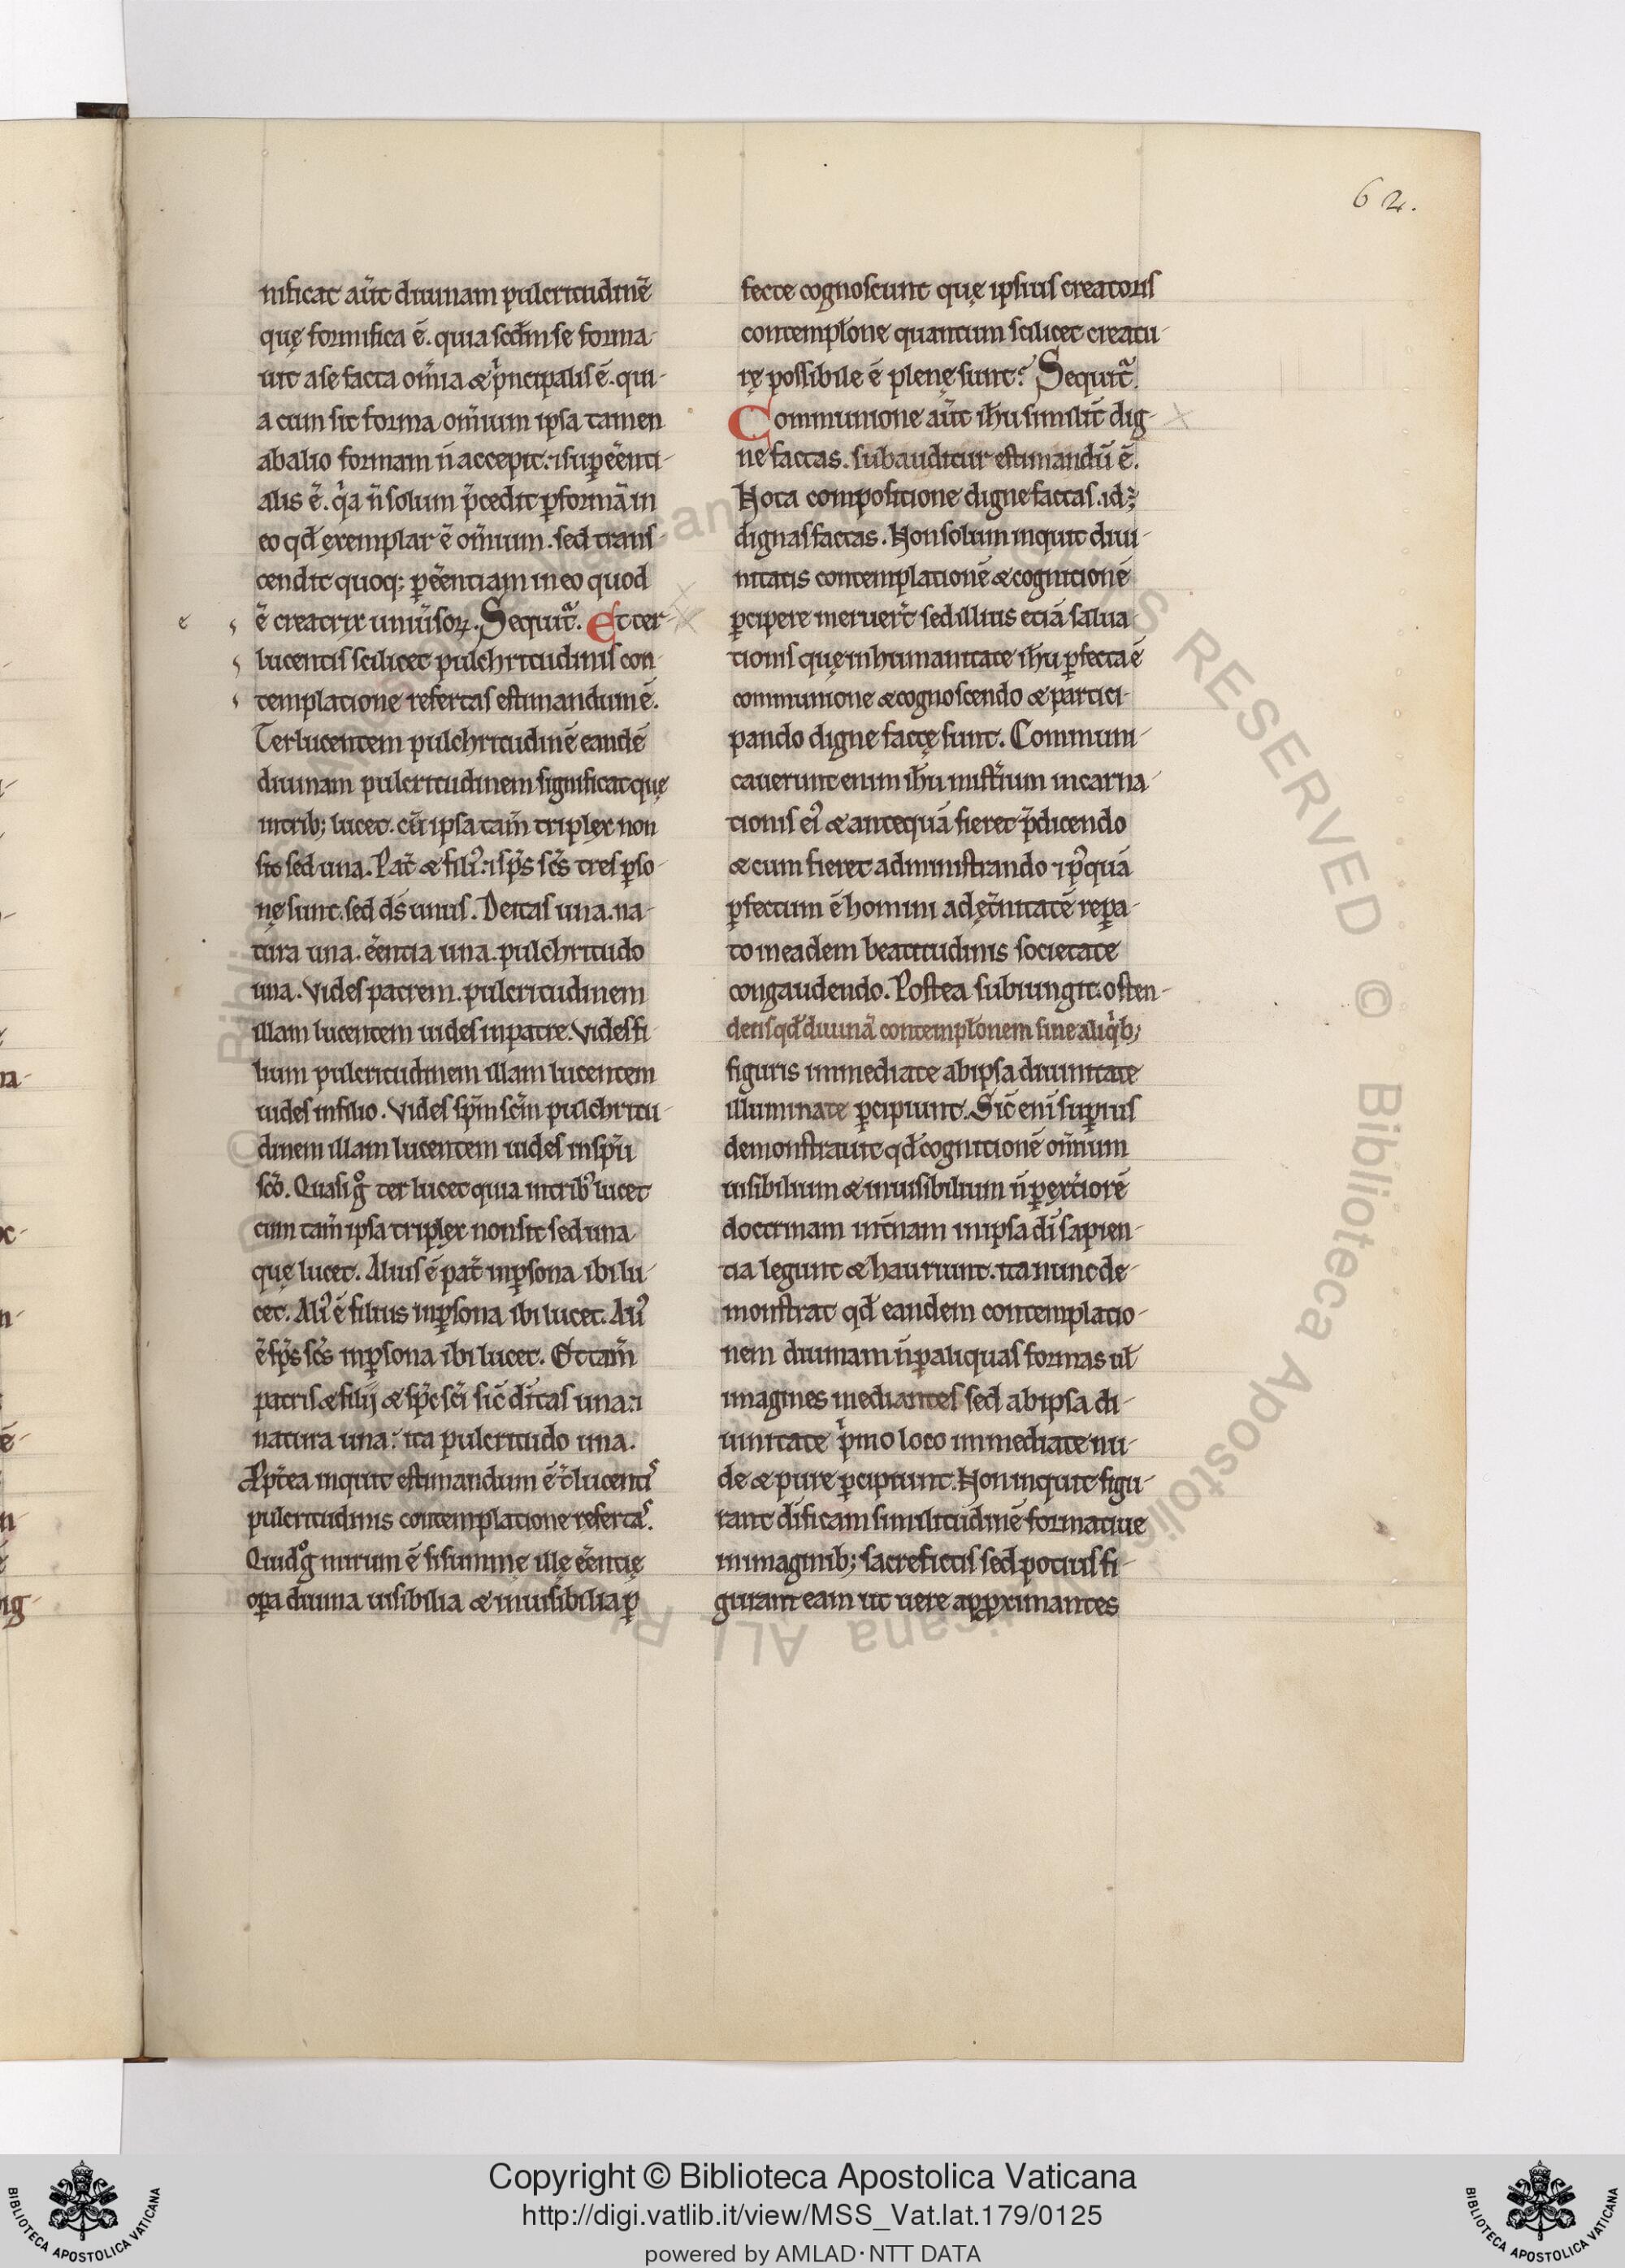 62.
nificat aūt diuinam pulcritudinē
quę formifica ē. quia scdm se forma-
uit a se facta om̄ia & p̄ncipalis ē. qui-
a cum sit forma om̄ium ipsa tamen
ab alio formam n̄ accepit. ⁊ suꝑēenti-
alis ē. q̓a n̄ solum p̄cedit ꝑ formā in
eo qd̄ exemplar ē om̄ium. sed trans-
cendit quoq; ꝑ ēentiam in eo quod
ē creatrix uniūsoꝝ. Sequit̄. Et ter-
lucentis scilicet pulchritudinis con-
templatione refertas estimandum ē.
Terlucentem pulchritudinē eandē
diuinam pulcritudinem significat quę
in trib; lucet. cū ipsa tam̄ triplex non
sit sed una. Pat̄ & fili᾿. ⁊ sp̄s sc̄s tres ꝑso-
nę sunt. sed ds̄ unus. Deitas una. na-
tura una. ēentia una. pulchritudo
una. Vides patrem. pulcritudinem
illam lucentem uides in patre. Vides fi-
lium pulcritudinem illam lucentem
uides in filio. Vides sp̄m sc̄m pulchritu-
dinem illam lucentem uides in sp̄u
sc̄o. Quasi gͦ ter lucet quia in trib᾿ lucet
cum tam̄ ipsa triplex non sit sed una
quę lucet. Alius ē pat̄ in ꝑsona ibi lu-
cet. Ali᾿ ē filius in ꝑsona ibi lucet. Ali᾿
ē sp̄s sc̄s in ꝑsona ibi lucet. Et tam̄
patris & filij & sp̄c sc̄i sic̄ dītas una. ⁊
natura una: ita pulcritudo una.
& ꝓpt̄ea inquit estimandum ē t̄lucentis
pulcritudinis contemplatione refertas.
Quid gͦ mirum ē si summę illę ēentię
oꝑa diuina uisibilia & inuisibilia ꝑ
fecte cognoscunt quę ipsius creatoris
contempl̄one quantum scilicet creatu-
rę possibile ē plenę sunt? Sequit̄.
Communione aūt ih̄u similit̄ dig-
ne factas. subauditur estimandū ē.
Nota compositione digne factas. id ē;
dignas factas. Non solum inquit diui-
nitatis contemplationē & cognitionē
ꝑcipere meruer̄t sed illius etiā salua-
tionis quę in humanitate ih̄u ꝑfecta ē
communione & cognoscendo & partici-
pando digne factę sunt. Communi-
cauerunt enim ih̄u mist̄ium incarna-
tionis ei᾿ & antequā fieret p̄dicendo
& cum fieret administrando ⁊ p᾿quā
ꝑfectum ē homini ad ęt̄nitatē repa-
to in eadem beatitudinis societate
congaudendo. Postea subiungit. osten-
dens qd̄ diuinā contempl̄onem sine aliq̓b;
figuris immediate ab ipsa diuinitate
illuminate ꝑcipiunt. Sic̄ enī suꝑius
demonstrauit qd̄ cognitionē om̄ium
uisibilium & inuisibilium n̄ ꝑ ext̓iorē
doctrinam int̄nam in ipsa dī sapien-
tia legunt & hauriunt. ita nunc de-
monstrat qd̄ eandem contemplatio-
nem diuinam n̄ ꝑ aliquas formas ul̄
imagines mediantes sed ab ipsa di-
uinitate p̓mo loco immediate nu-
de & pure ꝑcipiunt. Non inquit figu-
rant dīficam similitudinē formatiue
in imaginib; sacrefictis sed potius fi-
gurant eam ut uere apꝓximantes
Copyright © Biblioteca Apostolica Vaticana
http://digi.vatlib.it/view/MSS_Vat.lat.179/0125
powered by AMLAD·NTT DATA
BIBLIOTECA APOSTOLICA VATICANA
BIBLIOTECA APOSTOLICA VATICANA